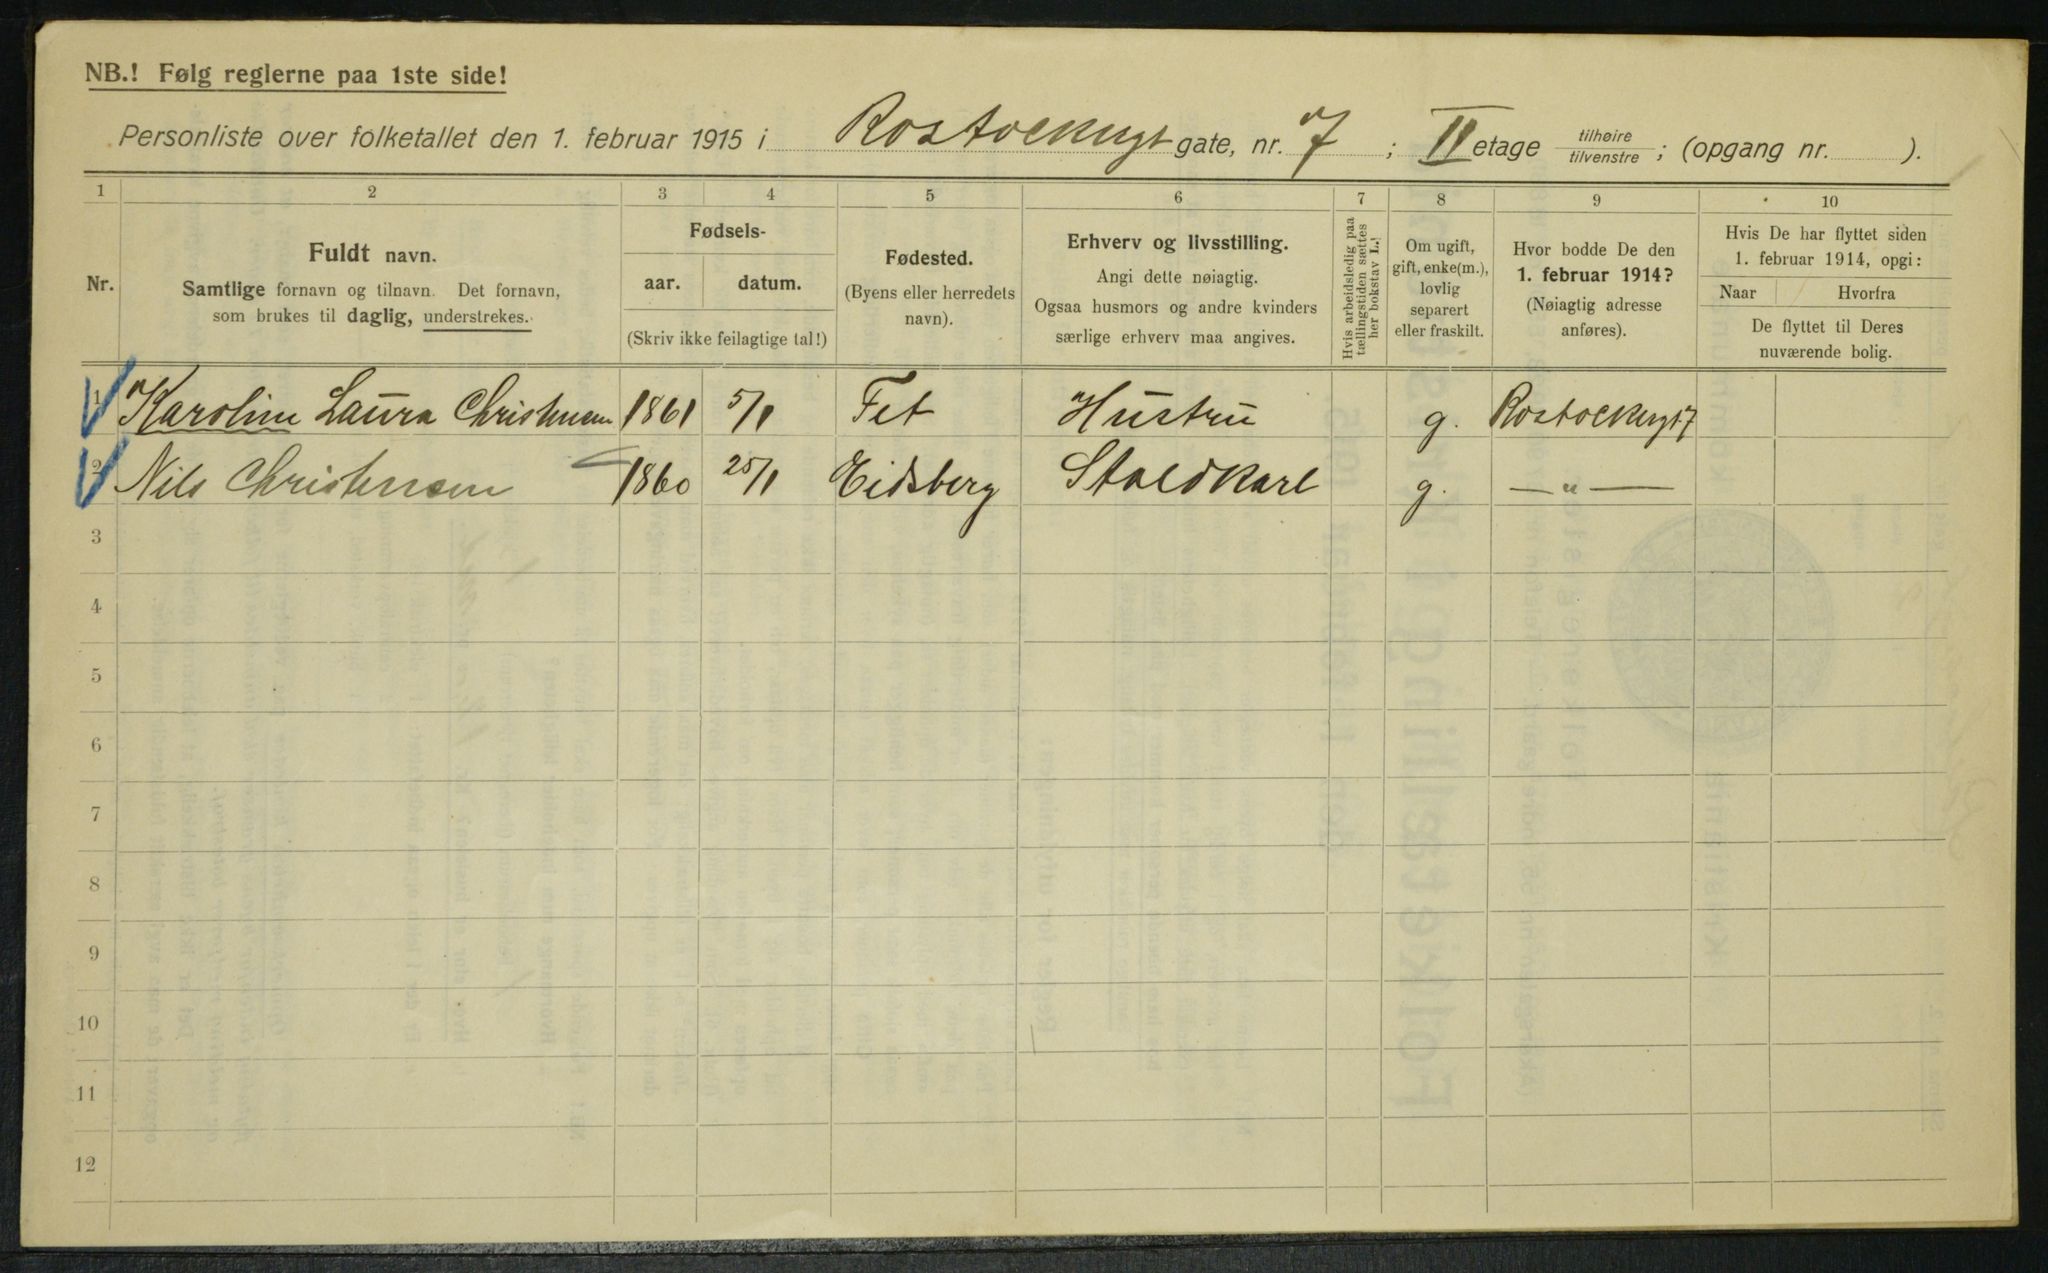 NB.! Følg reglerne paa 1ste side!
Personliste over folketallet den 1. februar 1915 i Rostockergt gate, nr. 7 ; II etage tilhøire / tilvenstre ; (opgang nr. ).
1 2 3 4 5 6 7 8 9 10
Nr.
Fuldt navn.
Samtlige fornavn og tilnavn. Det fornavn,
som brukes til daglig, understrekes.
Fødsels-
aar. datum.
(Skriv ikke feilagtige tal!)
Fødested.
(Byens eller herredets
navn).
Erhverv og livsstilling.
Angi dette nøiagtig.
Ogsaa husmors og andre kvinders
særlige erhverv maa angives.
Hvis arbeidsledig paa
tællingstiden sættes
her bokstav L.!
Om ugift,
gift, enke(m.),
lovlig
separert
eller fraskilt.
Hvor bodde De den
1. februar 1914?
(Nøiagtig adresse
anføres).
Hvis De har flyttet siden
1. februar 1914, opgi:
Naar Hvorfra
De flyttet til Deres
nuværende bolig.
1 Karoline Laura Christensen 1861 5/1 Fet Hustru g. Rostockergt 7
2 Nils Christensen 1860 25/1 Eidsberg Staldkarl g. — " —
3
4
5
6
7
8
9
10
11
12